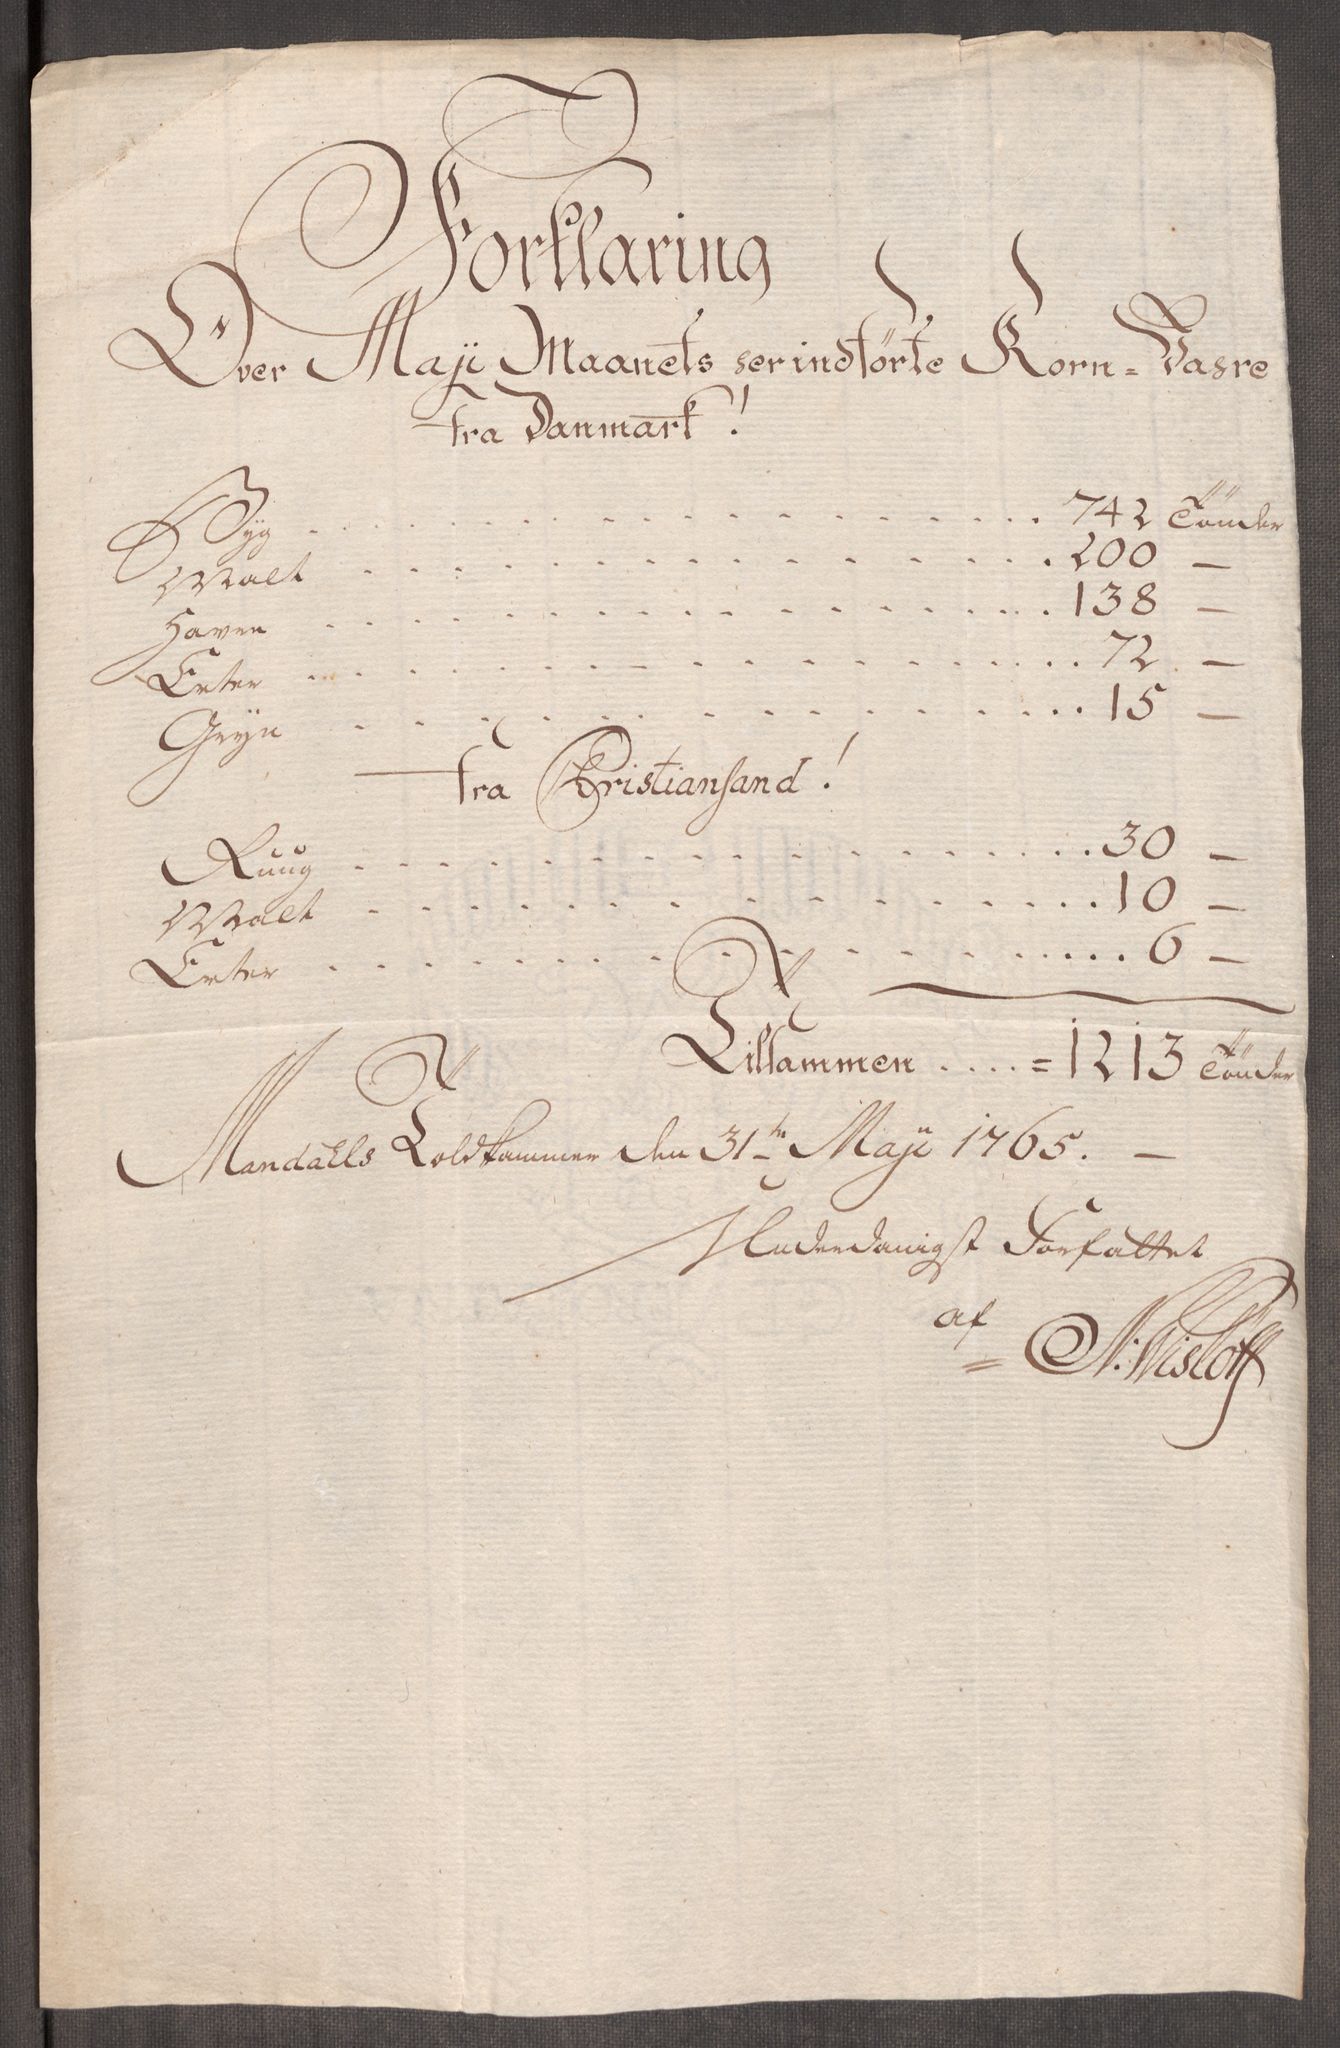 Forklaring
Over Maji Maanets her indførte Korn=Vahre
fra Danmark!
Byg . . . . . 742 Tönder
Malt . . . . . 200 —
Haver . . . . . 138 —
Erter . . . . . 72 —
Gryn . . . . . 15 —
fra Christiansand!
Ruug . . . . . 30 —
Malt . . . . . 10 —
Erter . . . . . 6 —
Tilsammen . . . . = 1213 Tönder
Mandahls Toldkammer den 31te Maji 1765. —
Underdanigst Forfattet
af
N: Wisløff